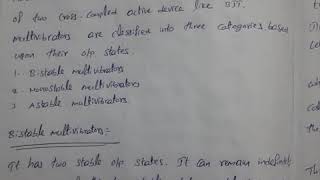 of two cross-coupled active device like BJT.
Multivibrators are classified into three categories based
upon their o/p states.
1. Bistable multivibrators
2. Monostable multivibrators
3. Astable multivibrators
Bistable multivibrators:-
It has two stable o/p states. It can remain indefinitely